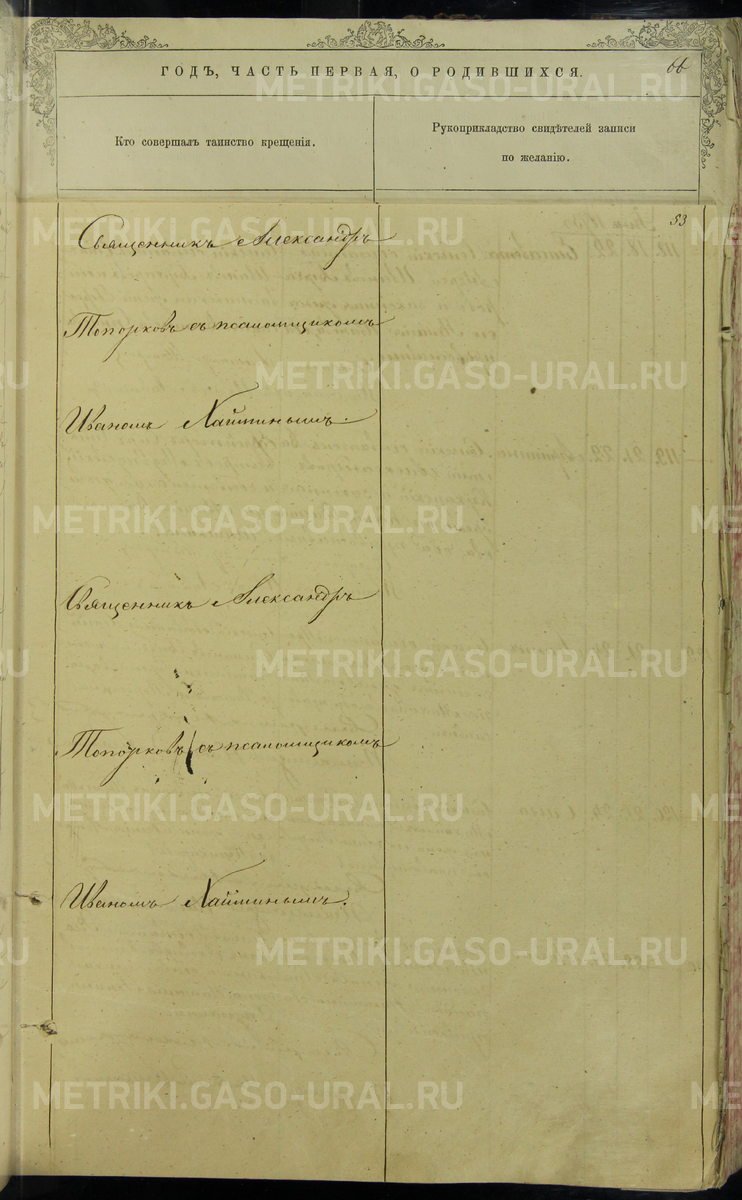 ГОДЪ, ЧАСТЬ ПЕРВАЯ, О РОДИВШИХСЯ.
66
Кто совершалъ таинство крещенія.
Рукоприкладство свидѣтелей записи
по желанію.
53
Священникъ Александръ
Топорковъ съ псаломщикомъ
Иваномъ Хайминымъ.
Священникъ Александръ
Топорковъ съ псаломщикомъ
Иваномъ Хайминымъ.
METRIKI.GASO-URAL.RU